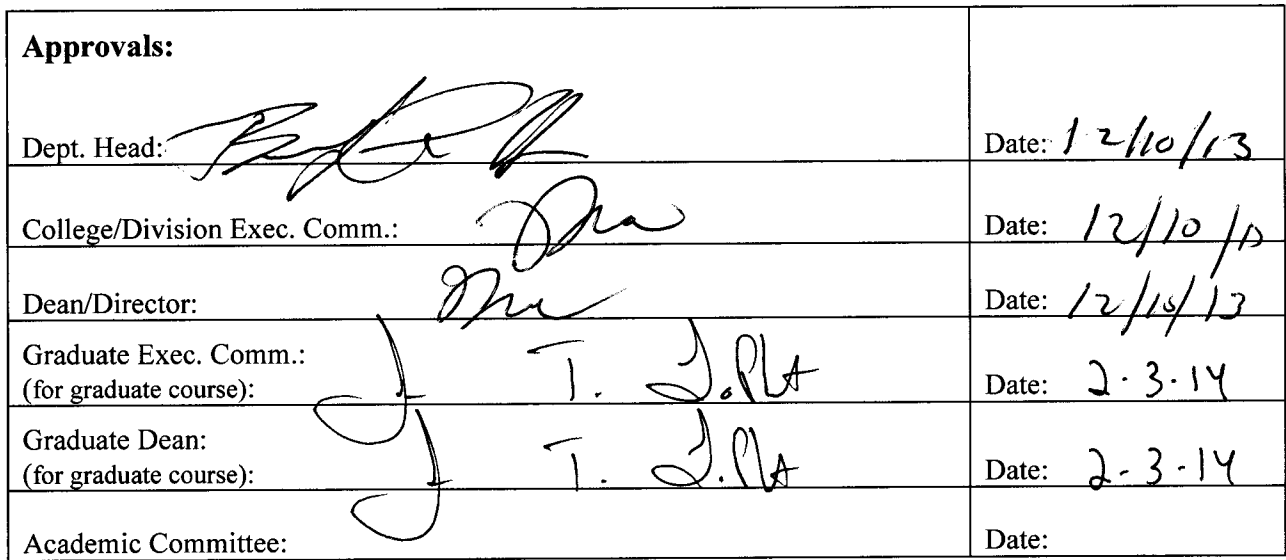 Approvals:
Dept. Head: Date: 12/10/13
College/Division Exec. Comm.: Date: 12/10/13
Dean/Director: Date: 12/10/13
Graduate Exec. Comm.:
(for graduate course): J T. Date: 2-3-14
Graduate Dean:
(for graduate course): J T. Date: 2-3-14
Academic Committee: Date: